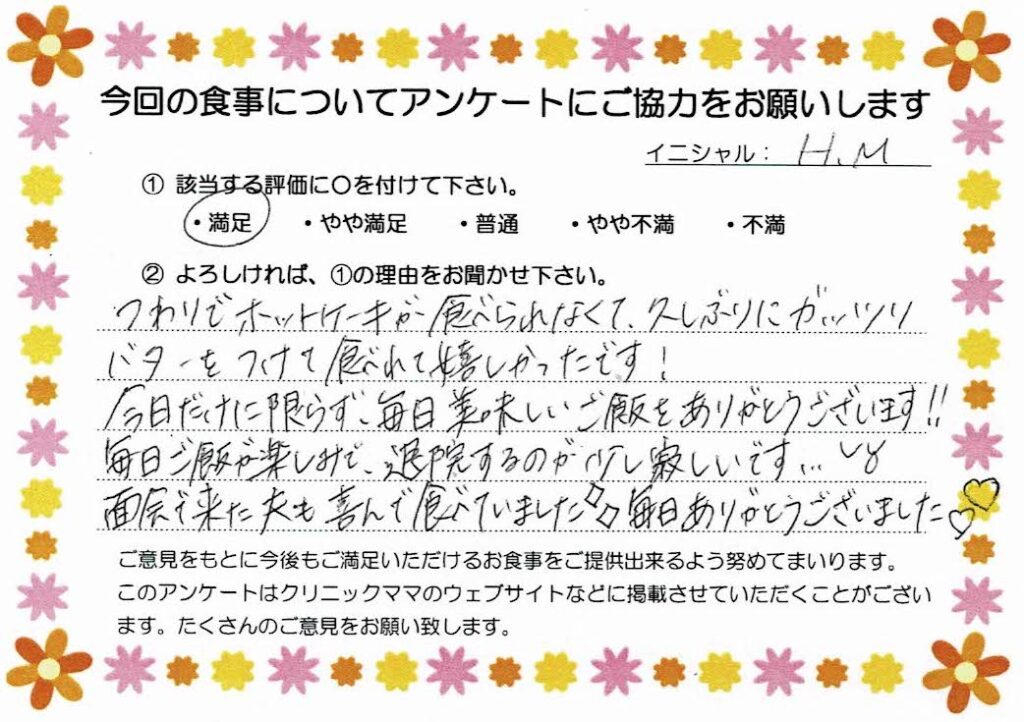 今回の食事についてアンケートにご協力をお願いします
イニシャル： H.M
① 該当する評価に〇を付けて下さい。
・満足 ・やや満足 ・普通 ・やや不満 ・不満
② よろしければ、①の理由をお聞かせ下さい。
つわりでホットケーキが食べられなくて、久しぶりにガッツリ
バターをつけて食べれて嬉しかったです！
今日だけに限らず、毎日美味しいご飯をありがとうございます!!
毎日ご飯が楽しみで、退院するのが少し寂しいです…
面会で来た夫も喜んで食べていました 毎日ありがとうございました♡♡
ご意見をもとに今後もご満足いただけるお食事をご提供出来るよう努めてまいります。
このアンケートはクリニックママのウェブサイトなどに掲載させていただくことがござい
ます。たくさんのご意見をお願い致します。